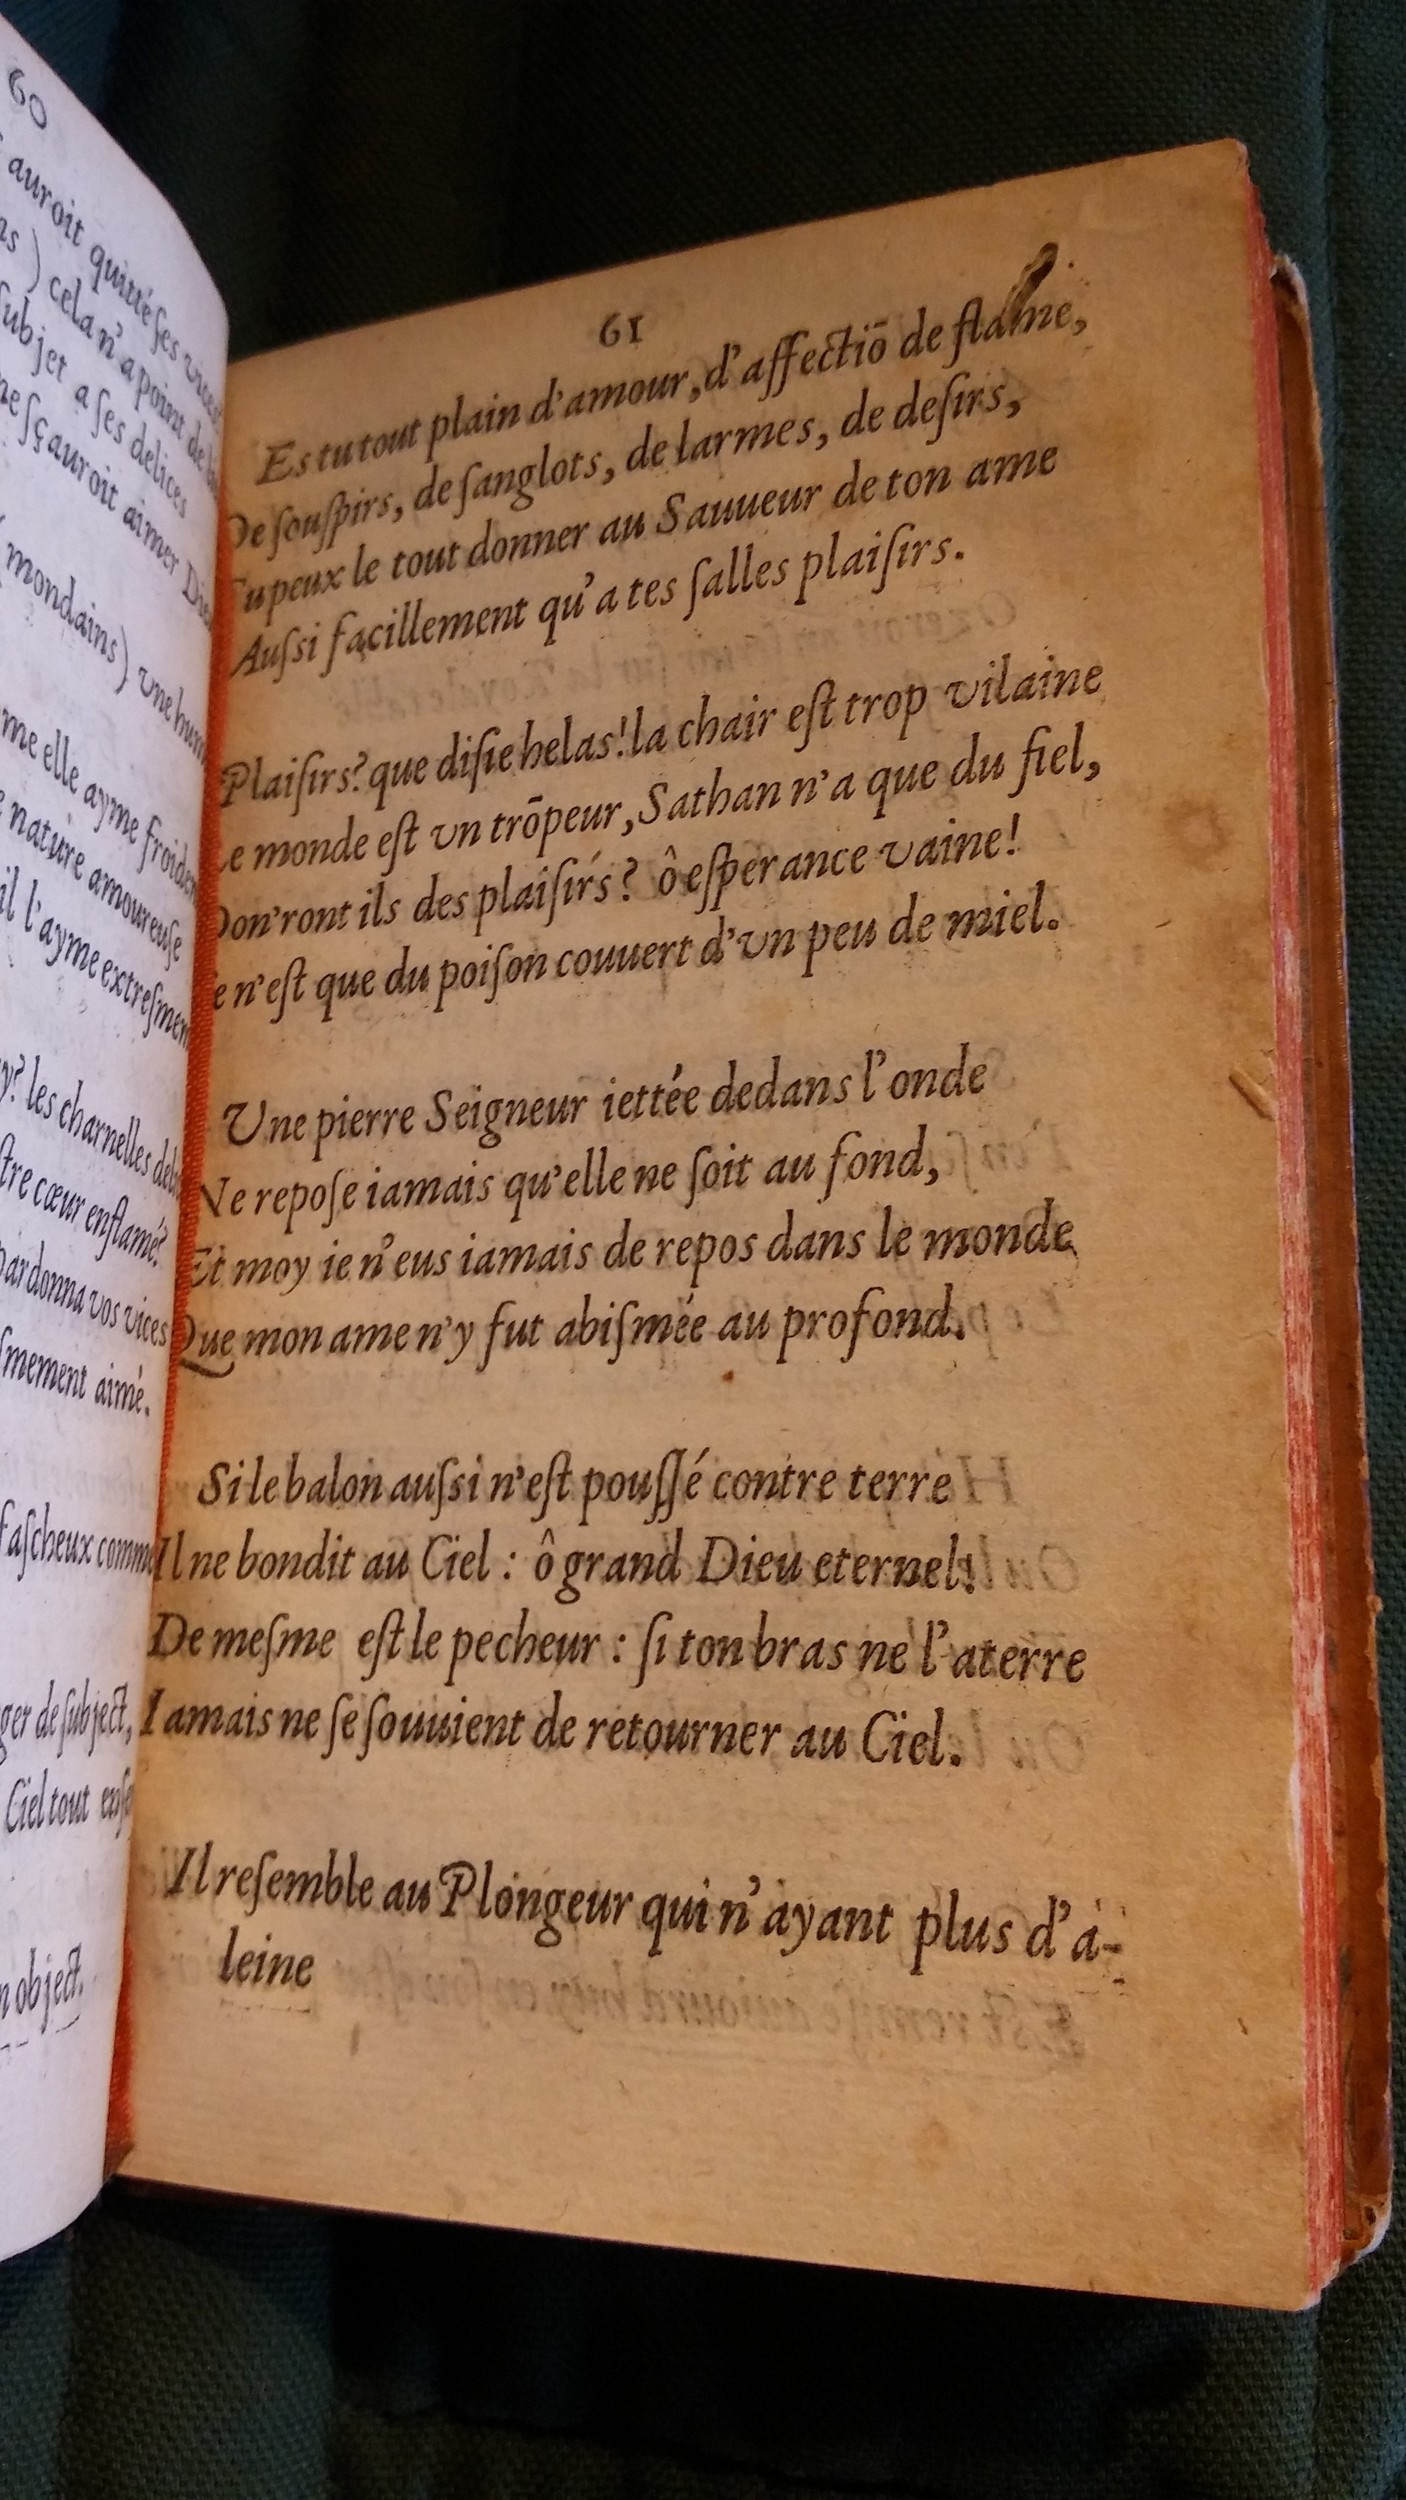 60
auroit quitté ſes
) cela n'a point de
ſubjet a ſes delices
ne ſçauroit aimer Dieu
mondains) vne
me elle ayme
nature amoureuſe
il l'ayme
les charnelles
cœur enflamé?
pardonna vos vices
aimé.
faſcheux
de ſubject,
Ciel tout
object.
61
Es tu tout plain d'amour, d'affectiō de flame,
De ſouſpirs, de ſanglots, de larmes, de deſirs,
Tu peux le tout donner au Sauueur de ton ame
Auſsi facillement qu'a tes ſalles plaiſirs.
Plaiſirs? que diſie helas! la chair eſt trop vilaine
Le monde eſt vn trōpeur, Sathan n'a que du fiel,
Don'ront ils des plaiſirs? ô eſperance vaine!
Ce n'eſt que du poiſon couuert d'vn peu de miel.
Une pierre Seigneur iettée dedans l'onde
Ne repoſe iamais qu'elle ne ſoit au fond,
Et moy ie n'eus iamais de repos dans le monde
Que mon ame n'y fut abiſmée au profond.
Si le balon auſsi n'eſt pouſſé contre terre
Il ne bondit au Ciel : ô grand Dieu eternel!
De meſme eſt le pecheur : ſi ton bras ne l'aterre
Iamais ne ſe ſouuient de retourner au Ciel.
Il reſemble au Plongeur qui n'ayant plus d'a-
leine